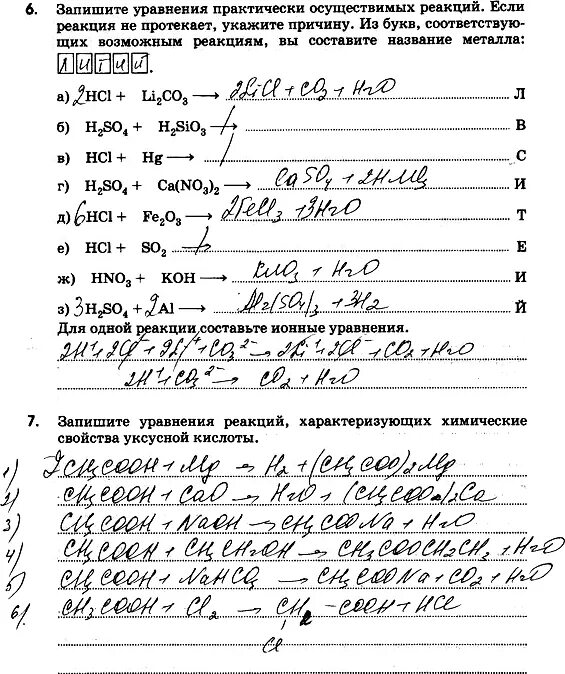 6. Запишите уравнения практически осуществимых реакций. Если
реакция не протекает, укажите причину. Из букв, соответствую-
щих возможным реакциям, вы составите название металла:
Л И Т И Й.
а) 2HCl + Li₂CO₃ → 2LiCl + CO₂ + H₂O Л
б) H₂SO₄ + H₂SiO₃ → В
в) HCl + Hg → С
г) H₂SO₄ + Ca(NO₃)₂ → CaSO₄ + 2HNO₃ И
д) 6HCl + Fe₂O₃ → 2FeCl₃ + 3H₂O Т
е) HCl + SO₂ Е
ж) HNO₃ + KOH → KNO₃ + H₂O И
з) 3H₂SO₄ + 2Al → Al₂(SO₄)₃ + 3H₂ Й
Для одной реакции составьте ионные уравнения.
2H⁺ + 2Cl⁻ + 2Li⁺ + CO₃²⁻ → 2Li⁺ + 2Cl⁻ + CO₂ + H₂O
2H⁺ + CO₃²⁻ → CO₂ + H₂O
7. Запишите уравнения реакций, характеризующих химические
свойства уксусной кислоты.
1) 2CH₃COOH + Mg → H₂ + (CH₃COO)₂Mg
2) CH₃COOH + CaO → H₂O + (CH₃COO)₂Ca
3) CH₃COOH + NaOH → CH₃COONa + H₂O
4) CH₃COOH + CH₃CH₂OH → CH₃COOCH₂CH₃ + H₂O
5) CH₃COOH + NaHCO₃ → CH₃COONa + CO₂ + H₂O
6) CH₃COOH + Cl₂ → CH₂ - COOH + HCl
Cl